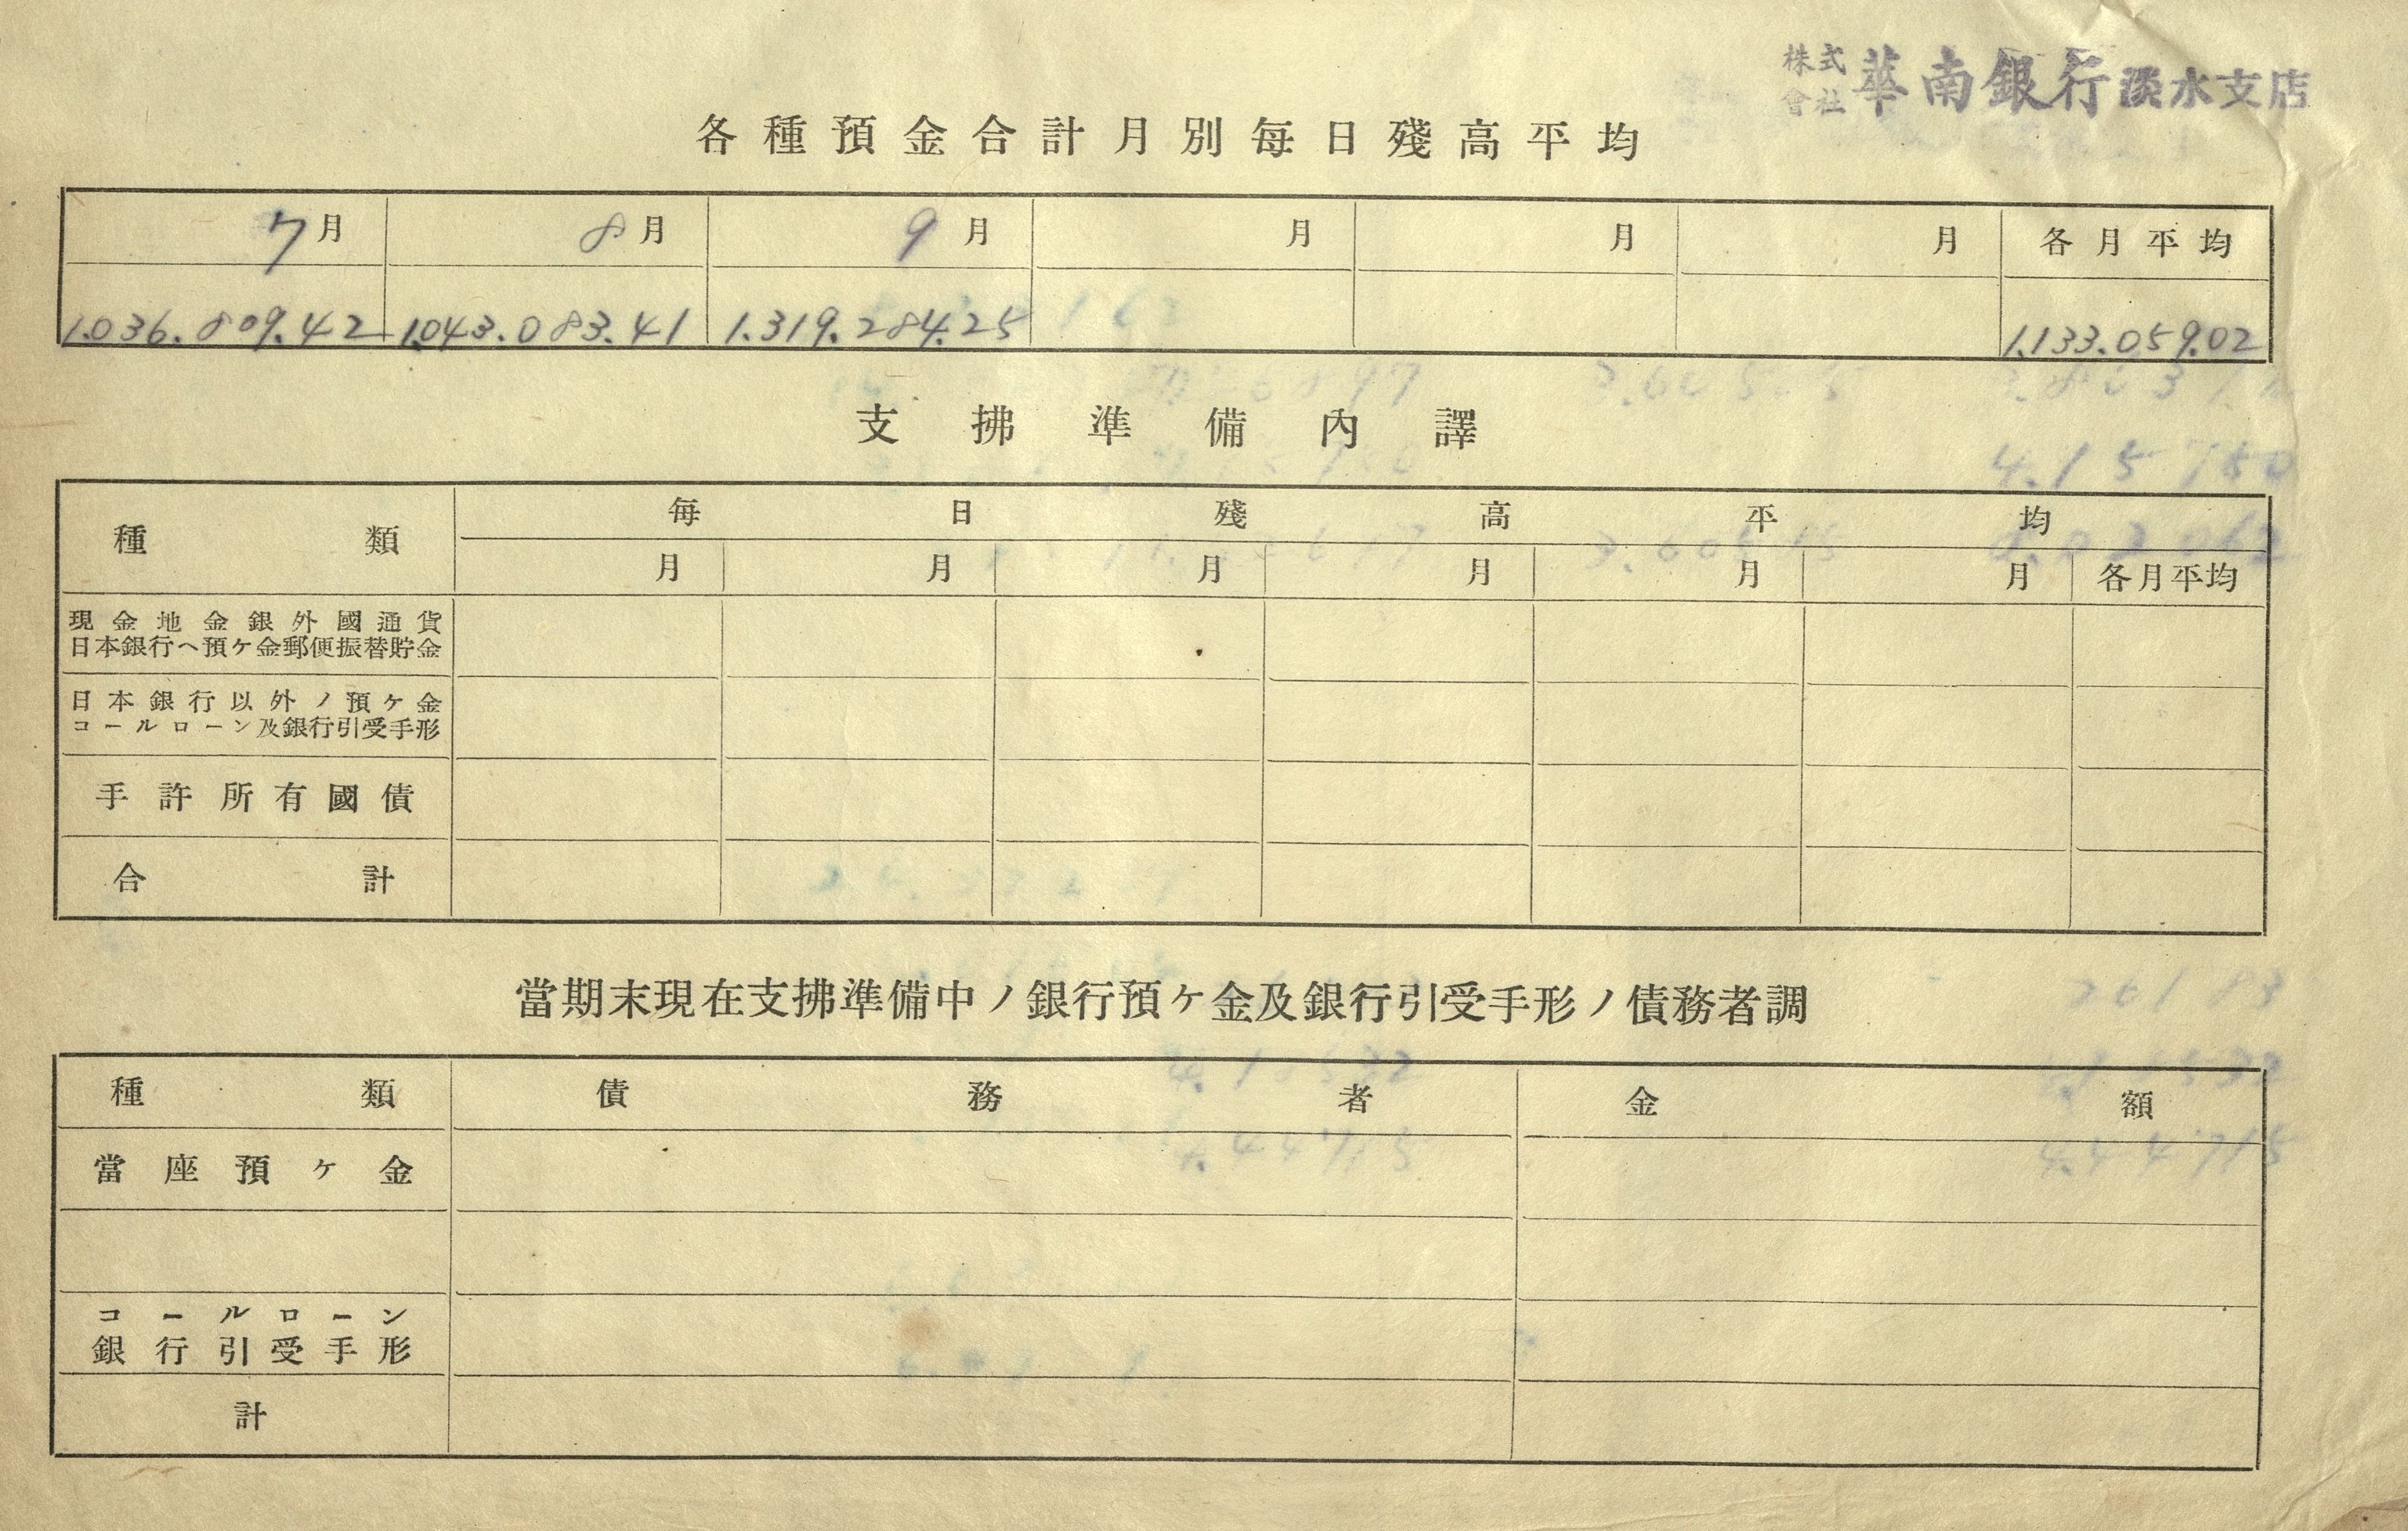 株式會社 華南銀行淡水支店
各種預金合計月別每日殘高平均
7月 8月 9月 月 月 月 各月平均
1.036.809.42 1.043.083.41 1.319.284.25 1.133.059.02
支拂準備內譯
種類 每日殘高平均
月 月 月 月 月 月 各月平均
現金地金銀外國通貨
日本銀行ヘ預ケ金郵便振替貯金
日本銀行以外ノ預ケ金
コールローン及銀行引受手形
手許所有國債
合計
當期末現在支拂準備中ノ銀行預ケ金及銀行引受手形ノ債務者調
種類 債務者 金額
當座預ケ金
コールローン
銀行引受手形
計